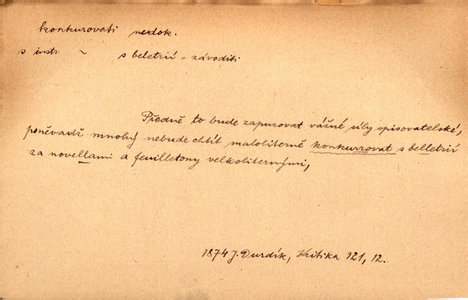 konkurovati nedok.
s instr. ~ s beletrií = závoditi
Předně to bude zapuzovat vážné síly spisovatelské,
poněvadž mnohý nebude chtít maloliterně konkurovat s belletrií
za novellami a feuilletony velkoliternými,
1874 J. Durdík, Kritika 121, 12.